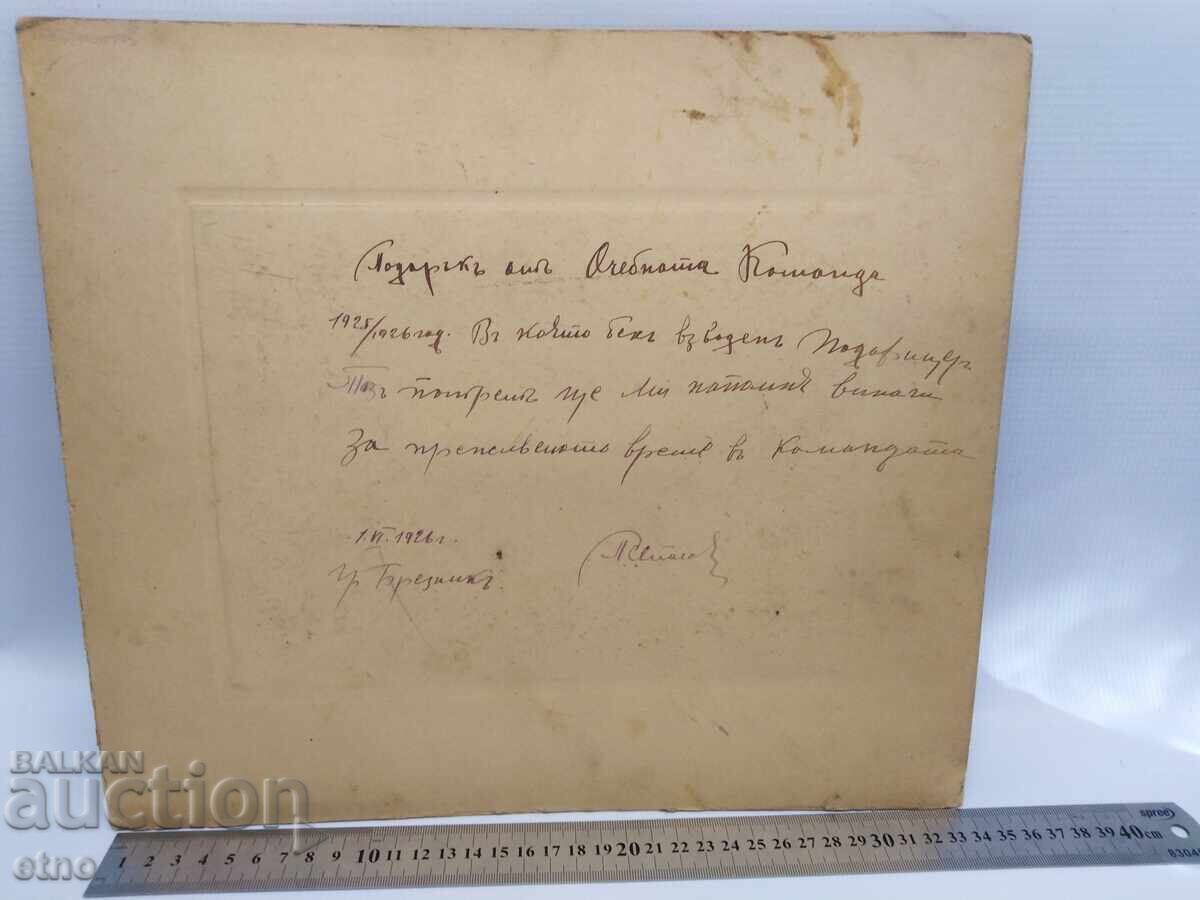 Подаръкъ отъ Очебната Команда
1925/1926 год. Въ която бехъ взводенъ Подофицеръ
Тозъ портретъ ще ми напомня винаги
За прекараното време въ командата
1.VI.1926 г.
гр Брезникъ
BALKAN
auction
etno
1 2 3 4 5 6 7 8 9 10 11 12 13 14 15 16 17 18 19 20 21 22 23 24 25 26 27 28 29 30 31 32 33 34 35 36 37 38 39 40 cm
spree